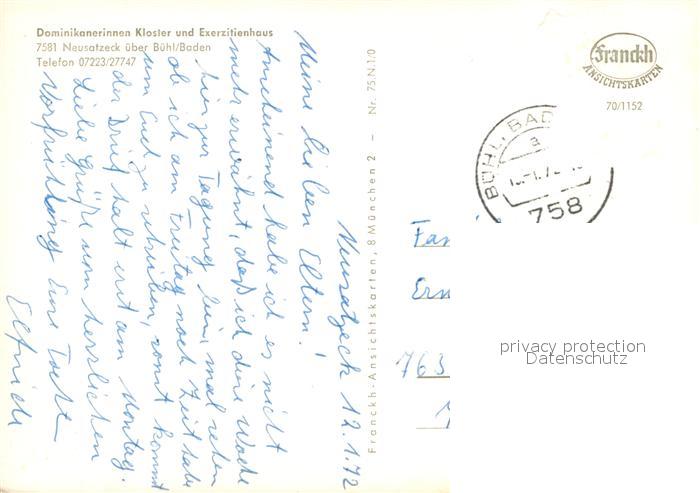 Dominikanerinnen Kloster und Exerzitienhaus
7581 Neusatzeck über Bühl/Baden
Telefon 07223/27747
Franckh
ANSICHTSKARTEN
70/1152
BÜHL, BAD
a
758
Neusatzeck 12.1.72
Meine lieben Eltern!
Anscheinend habe ich es nicht
mehr erwähnt, daß ich diese Woche
hier zur Tagung bin, mal sehen
ob ich am Freitag noch Zeit habe
um Euch zu schreiben, sonst kommt
der Brief halt erst am Montag.
Liebe Grüße vom herrlichen
Vorfrühling Eure Tocht
Elfriede
Franckh-Ansichtskarten, 8 München 2 – Nr. 75.N.1/0
Fam
Ern
763
privacy protection
Datenschutz